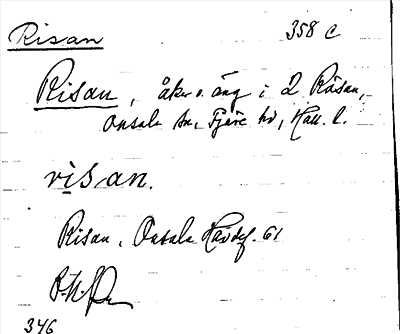 Risan 358 c
Risan, åker o. äng i 2 Råsan,
Onsala sn, Fjäre hd, Hall. l.
risan.
Risan, Onsala Hävdef. 61
346